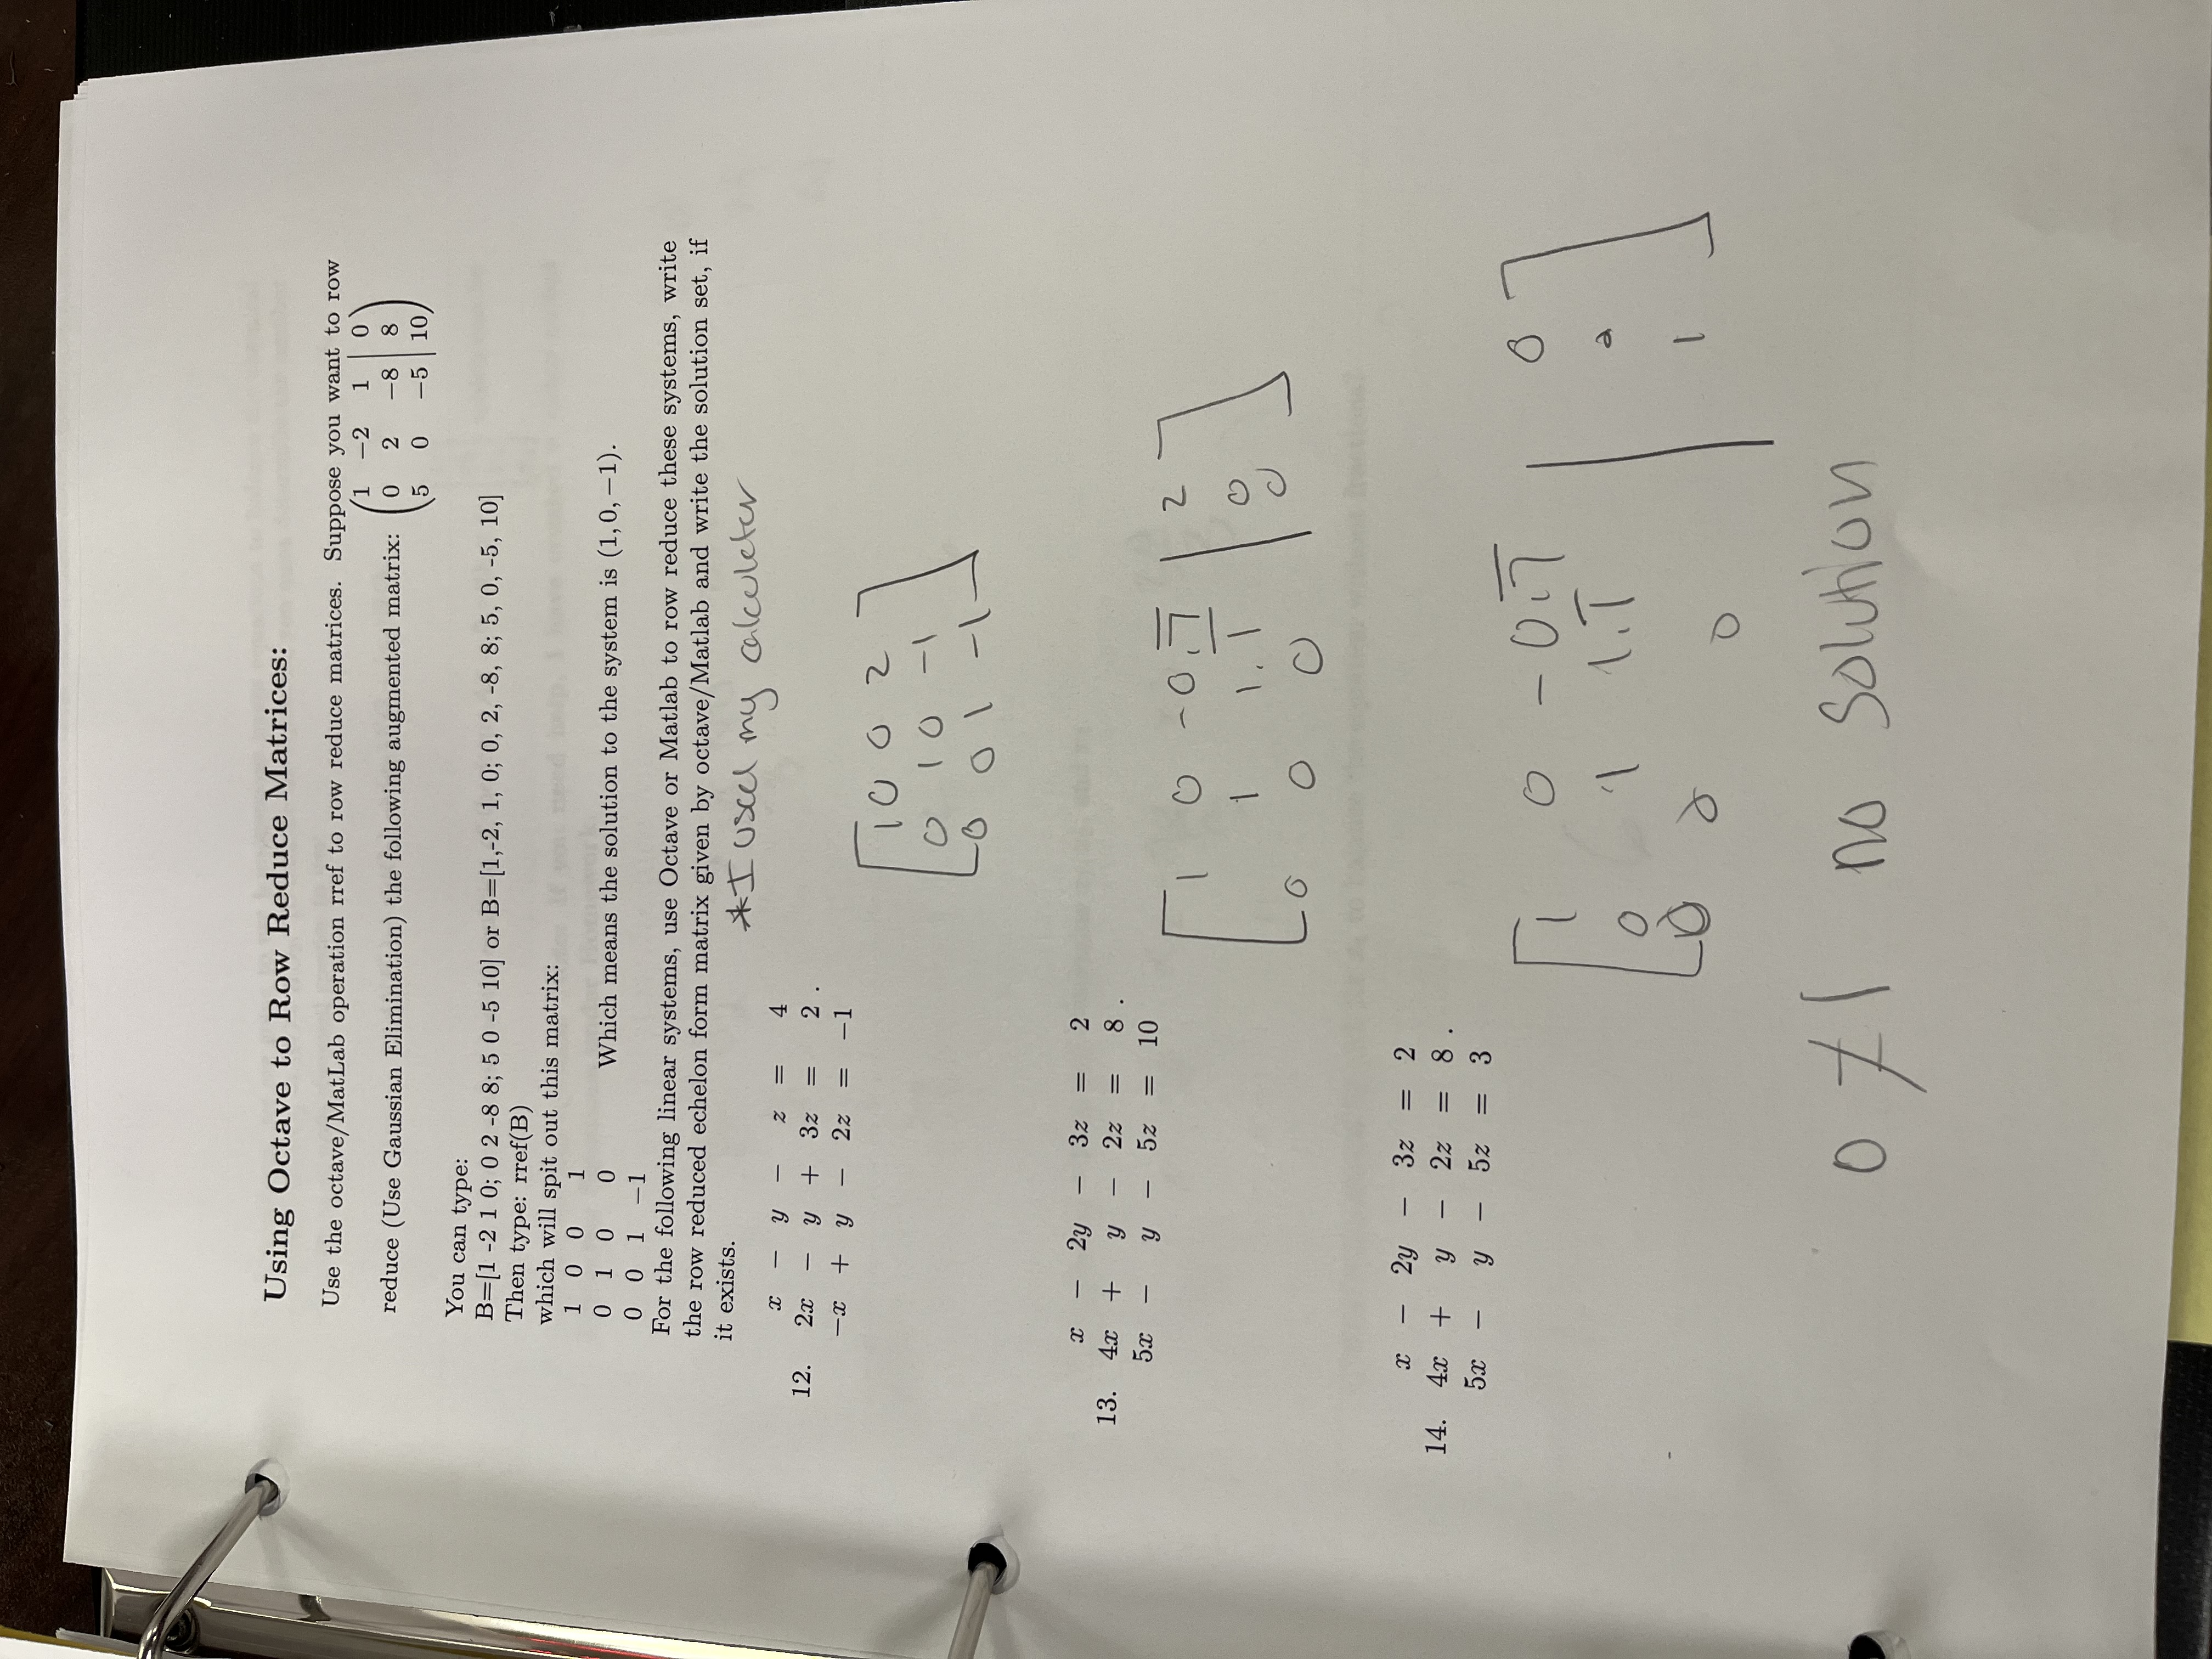 Using Octave to Row Reduce Matrices:
Use the octave/MatLab operation rref to row reduce matrices. Suppose you want to row
reduce (Use Gaussian Elimination) the following augmented matrix:
1 −2 1 | 0
0 2 −8 | 8
5 0 −5 | 10
You can type:
B=[1 -2 1 0; 0 2 -8 8; 5 0 -5 10] or B=[1,-2, 1, 0; 0, 2, -8, 8; 5, 0, -5, 10]
Then type: rref(B)
which will spit out this matrix:
1 0 0 1
0 1 0 0 Which means the solution to the system is (1, 0, −1).
0 0 1 −1
For the following linear systems, use Octave or Matlab to row reduce these systems, write
the row reduced echelon form matrix given by octave/Matlab and write the solution set, if
it exists.
*I used my calculator
x − y − z = 4
12. 2x − y + 3z = 2 .
−x + y − 2z = −1
1 0 0 2
0 1 0 -1
0 0 1 -1
x − 2y − 3z = 2
13. 4x + y − 2z = 8 .
5x − y − 5z = 10
1 0 -0.7̅ | 2
1 1.1̅ | 0
0 0 0 | 0
x − 2y − 3z = 2
14. 4x + y − 2z = 8 .
5x − y − 5z = 3
1 0 -0.7̅ | 0
0 1 1.1̅ | 0
0 0 0 | 1
0 ≠ 1 no solution